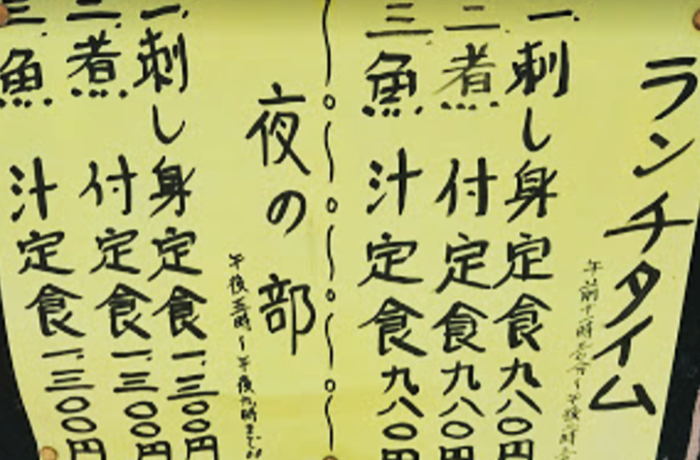 ランチタイム
一、刺し身定食九八〇円
二、煮付定食九八〇円
三、魚汁定食九八〇円
夜の部
午後五時〜午後九時まで
一、刺し身定食一、三〇〇円
二、煮付定食一、三〇〇円
三、魚汁定食一、三〇〇円